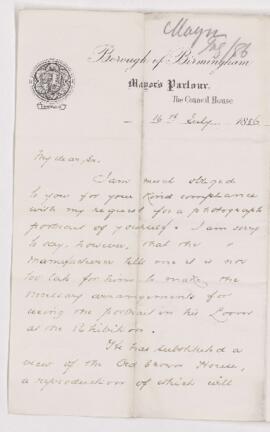 Mayor
Borough of Birmingham
Mayor's Parlour.
The Council House
16th July 1886
My dear Sir.
I am much obliged
to you for your kind compliance
with my request for a photograph
portrait of yourself. I am sorry
to say, however, that the
manufacturer tells me it is now
too late for him to make the
necessary arrangements for
using the portrait on his Loom
at the Exhibition.
He has substituted a
view of the Old Crown House,
a reproduction of which will